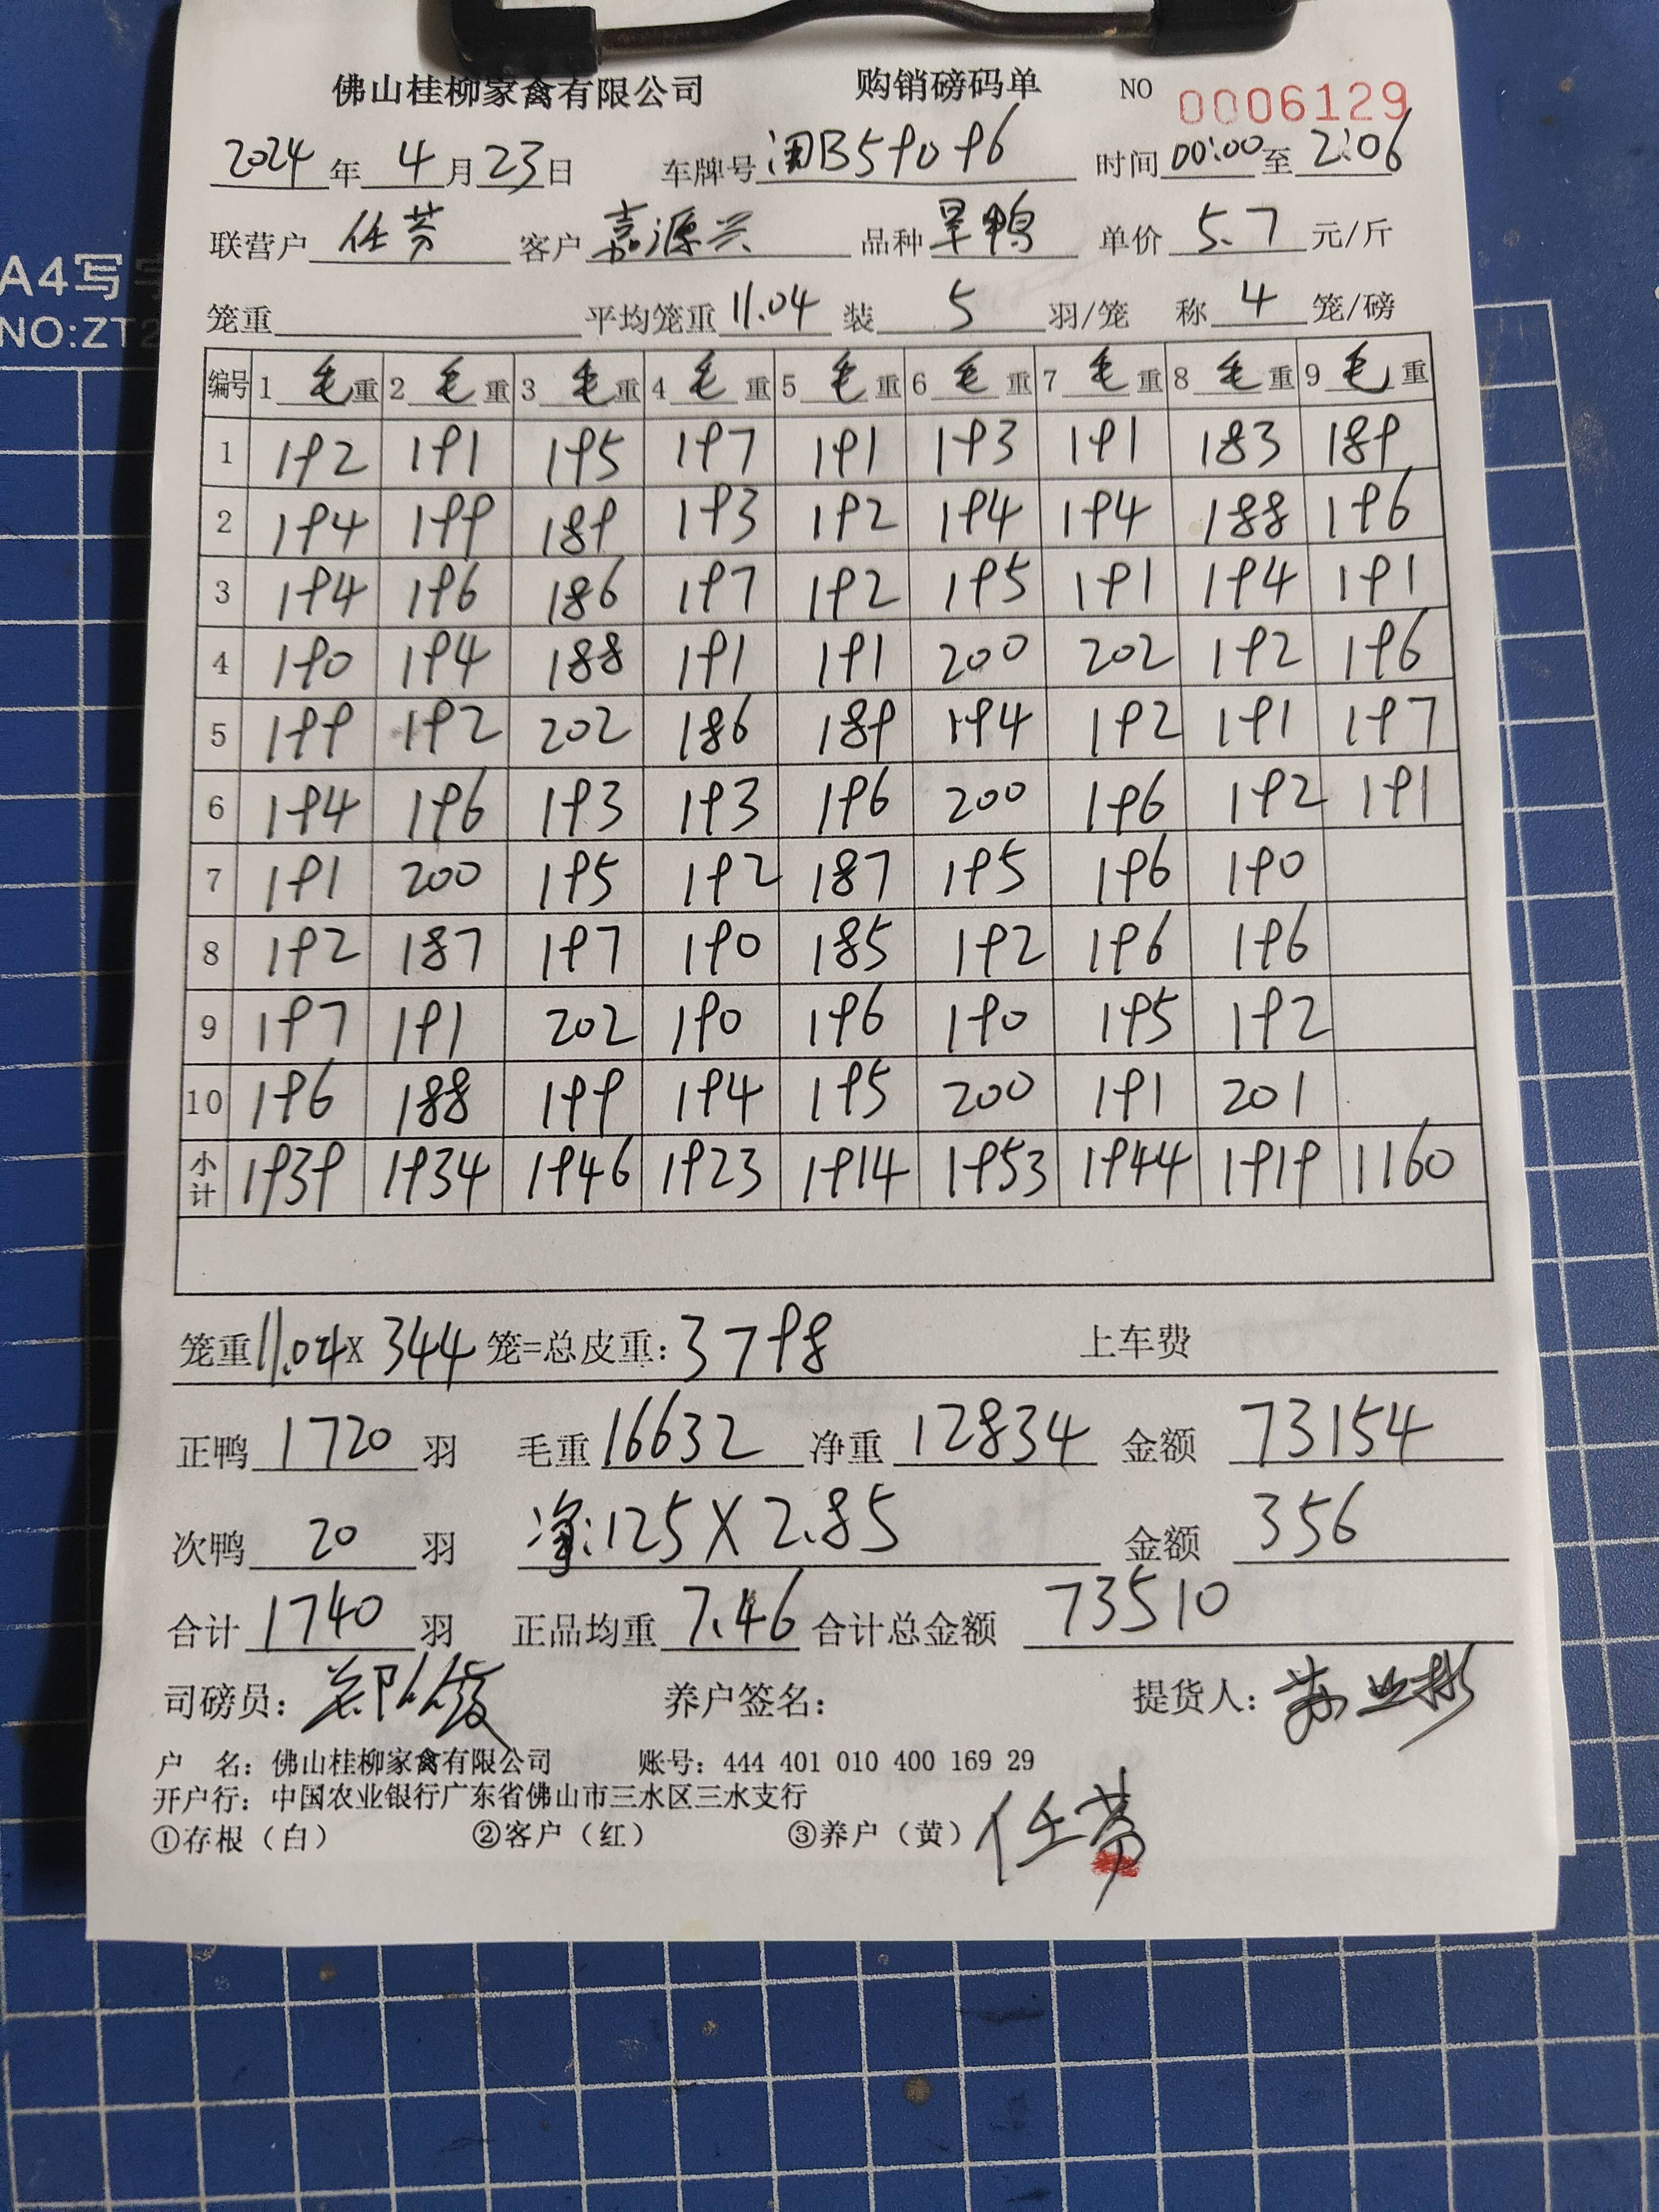 佛山桂柳家禽有限公司 购销磅码单 NO 0006129
2024年4月23日 车牌号 闽B59096 时间 00:00 至 2:06
联营户 任芬 客户 嘉源兴 品种 旱鸭 单价 5.7 元/斤
A4写
笼重 平均笼重 11.04 装 5 羽/笼 称 4 笼/磅
NO:ZT2
编号 1 毛重 2 毛重 3 毛重 4 毛重 5 毛重 6 毛重 7 毛重 8 毛重 9 毛重
1 192 191 195 197 191 193 191 183 189
2 194 199 189 193 192 194 194 188 196
3 194 196 186 197 192 195 191 194 191
4 190 194 188 191 191 200 202 192 196
5 199 192 202 186 189 194 192 191 197
6 194 196 193 193 196 200 196 192 191
7 191 200 195 192 187 195 196 190
8 192 187 197 190 185 192 196 196
9 197 191 202 190 196 190 195 192
10 196 188 199 194 195 200 191 201
小计 1939 1934 1946 1923 1914 1953 1944 1919 1160
笼重 11.04 X 344 笼=总皮重: 3798 上车费
正鸭 1720 羽 毛重 16632 净重 12834 金额 73154
次鸭 20 羽 净:125 X 2.85 金额 356
合计 1740 羽 正品均重 7.46 合计总金额 73510
司磅员: 养户签名: 提货人:
户 名: 佛山桂柳家禽有限公司 账号: 444 401 010 400 169 29
开户行: 中国农业银行广东省佛山市三水区三水支行
①存根（白） ②客户（红） ③养户（黄） 任芬